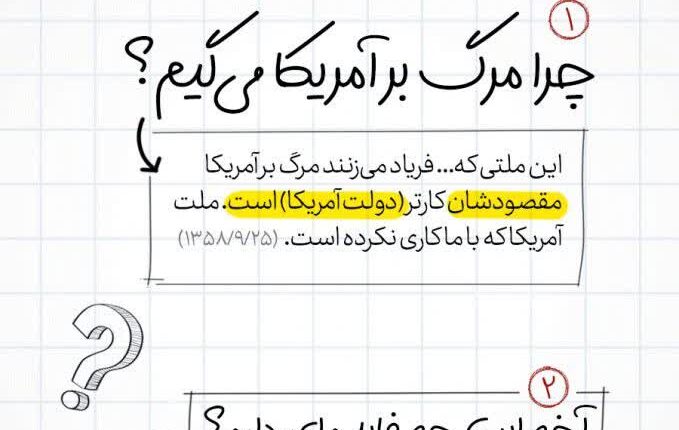 ۱
چرا مرگ بر آمریکا می‌گیم؟
این ملتی که... فریاد می‌زنند مرگ بر آمریکا
مقصودشان کارتر (دولت آمریکا) است. ملت
آمریکا که با ما کاری نکرده است. (۱۳۵۸/۹/۲۵)
۲